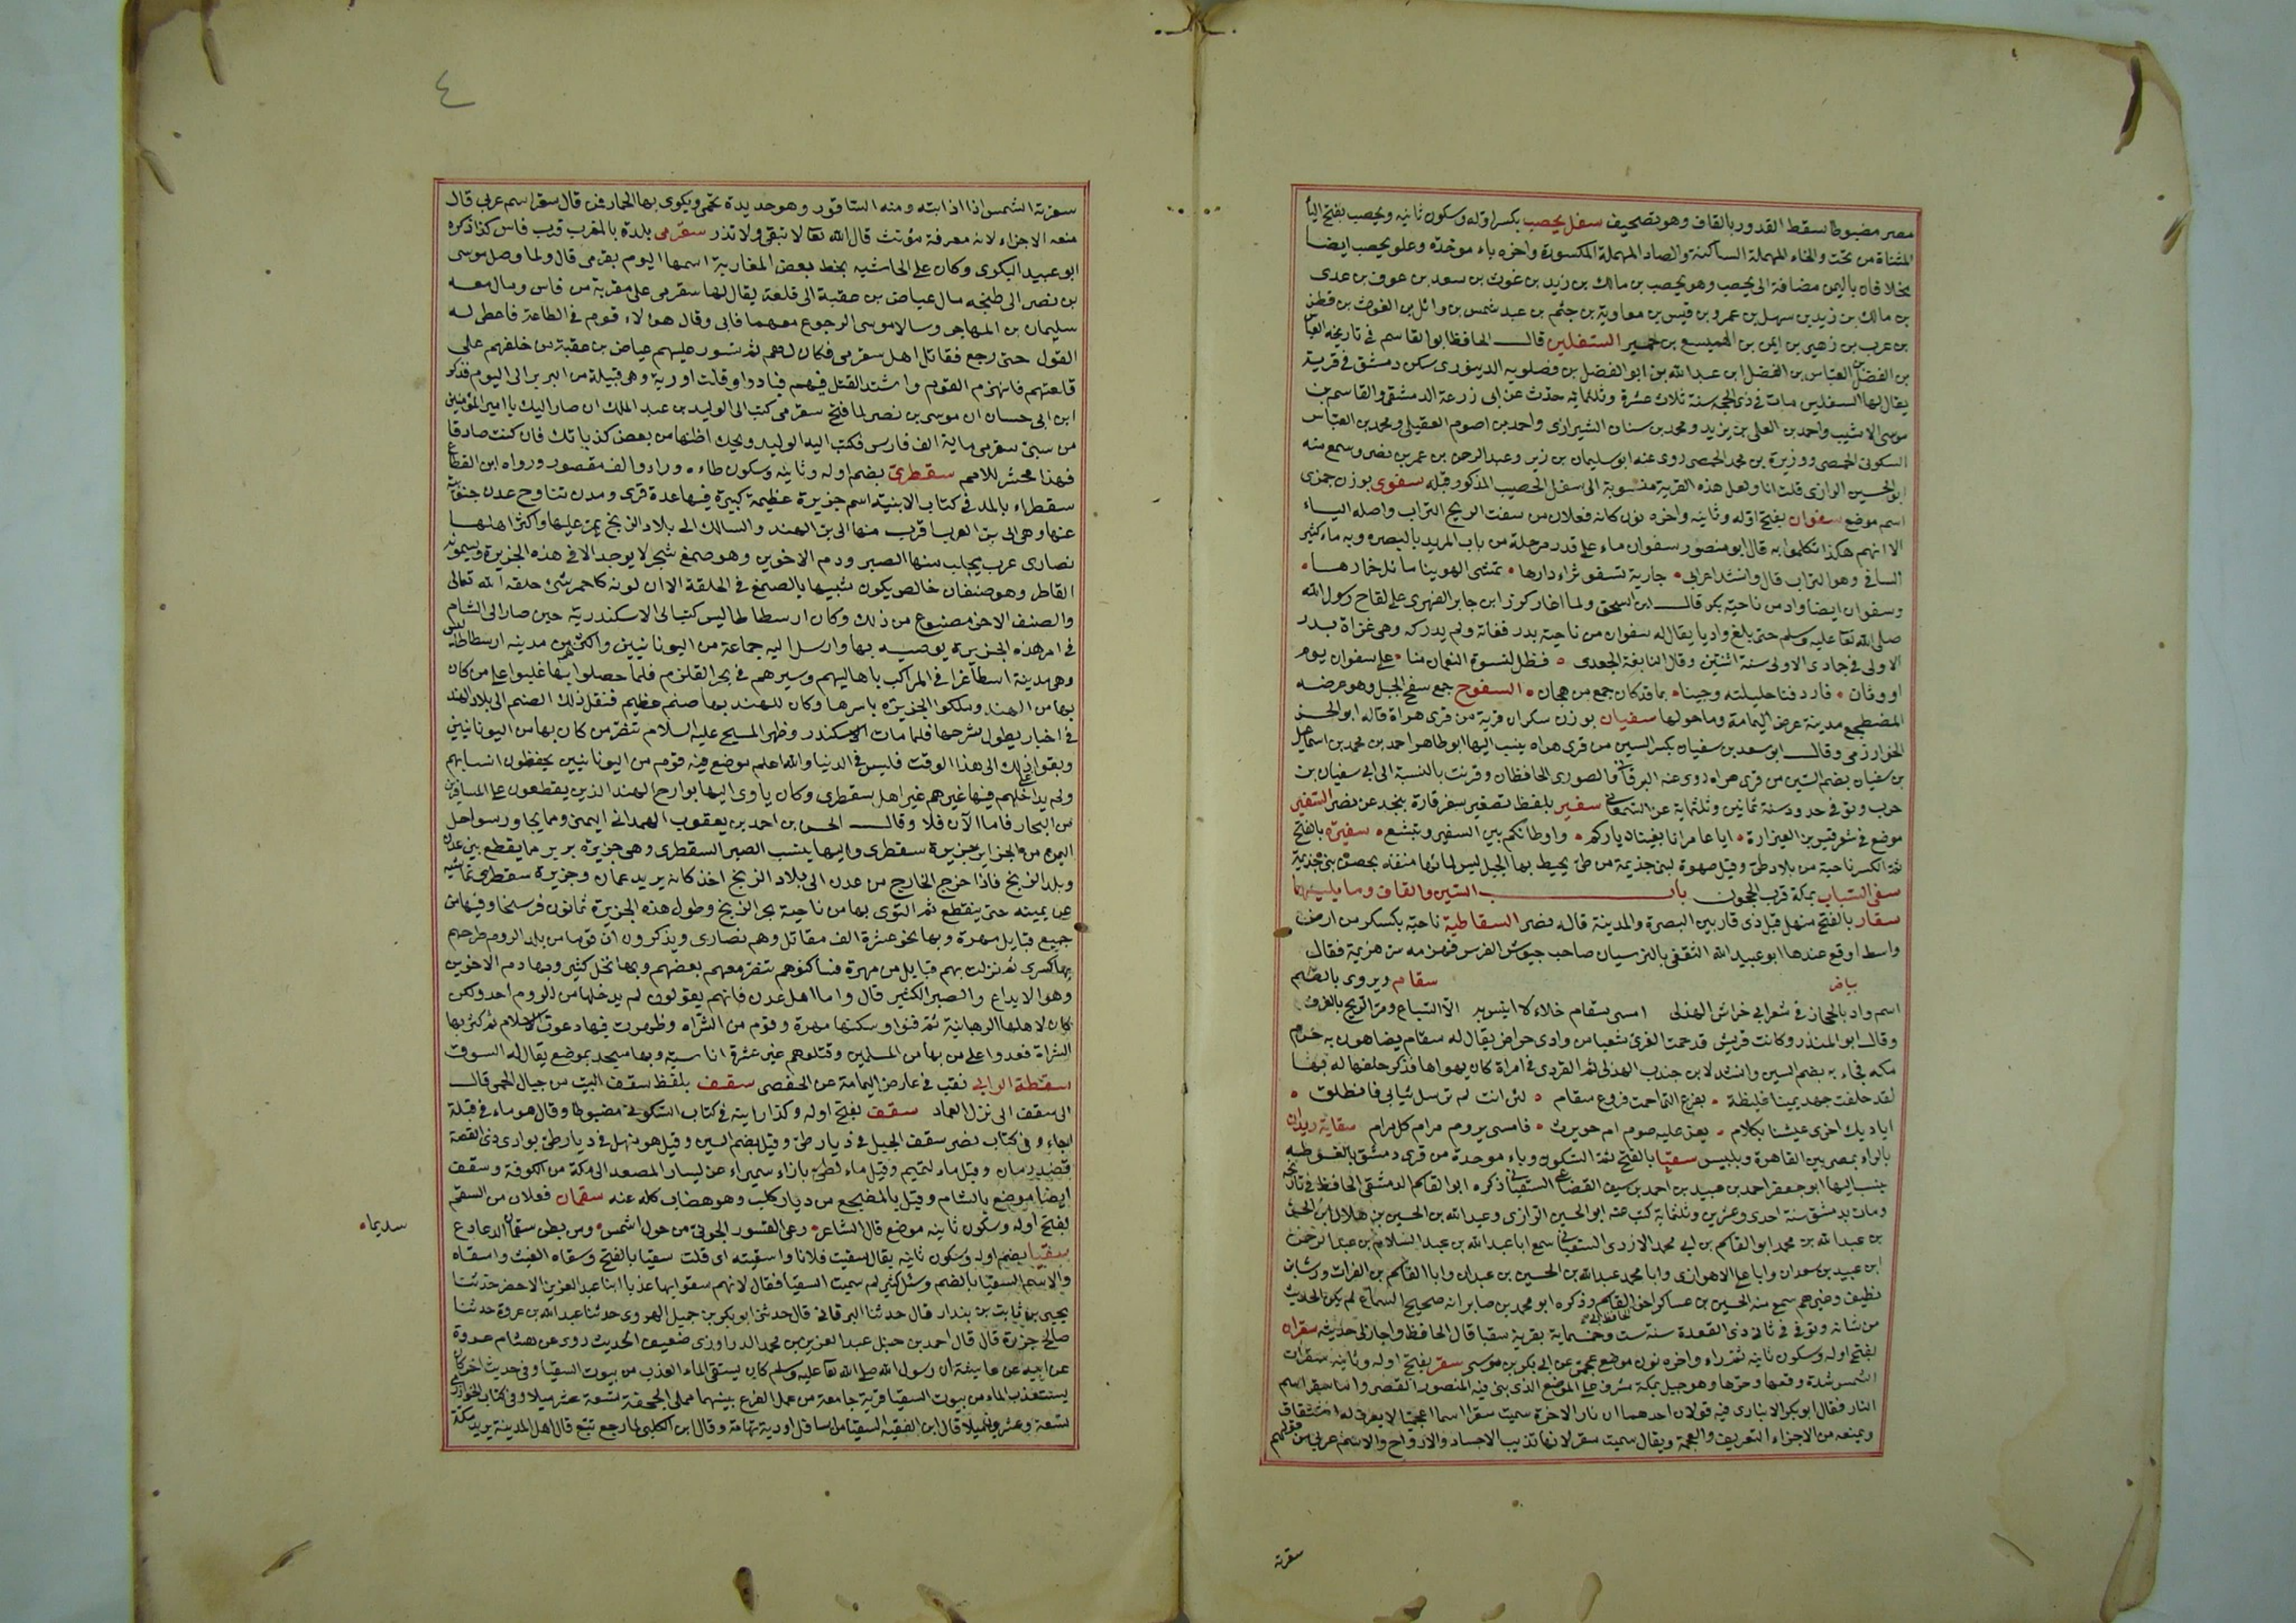 مصر مضبوطا سقط القدور بالقاف وهو تصحيف سفل يحصب بكسر اوله وسكون ثانيه ويحصب بفتح اليا
المثناة من تحت والحاء المهملة الساكنة والصاد المهملة المكسورة واخره باء موحدة وعلو يحصب ايضا
مخلافان باليمن مضافة الى يحصب وهو يحصب بن مالك بن زيد بن غوث بن سعد بن عوف بن عدى
بن مالك بن زيد بن سهل بن عمرو بن قيس بن معاوية بن جثم بن عبد شمس بن وائل بن الغوث بن قطن
بن عرب بن زهير بن ايمن بن الهميسع بن حمير السفلين قال الحافظ ابو القاسم فى تاريخه العباس
بن الفضل العباس بن الفضل ابن عبد الله بن ابو الفضل بن فضلويه الدينورى سكن دمشق فى قرية
يقال لها السفلين مات فى ذى الحجه سنة ثلاث عشرة وثلثمائه حدث عن ابى زرعة الدمشقى والقاسم بن
موسى الاشيب واحمد بن العلى بن يزيد ومحمد بن سنان الشيرازى واحمد بن اصرم العقيلى ومحمد بن العباس
السكونى الحمصى ووزيرة بن محمد الحمصى روى عنه ابو سليمان بن زبر وعبد الرحمن بن عمر بن نصر وسمع منه
ابو الحسين الرازى قلت انا ولعل هذه القرية منسوبة الى سفل الحصيب المذكور قبله سفوى بوزن جمزى
اسم موضع سفوان بفتح اوله وثانيه واخره نون كانه فعلان من سفت الريح التراب واصله الياء
الا انهم هكذا تكلموا به قال ابو منصور سفوان ماء على قدر مرحلة من باب المربد بالبصره وبه ماء كثير
السافى وهو التراب قال وانشد اعرابى • جارية بسفوان دارها • تمشى الهوينا مائل خمارها •
وسفوان ايضا واد من ناحية بدر قال ابن اسحق ولما اغار كرز ابن جابر الفهرى على لقاح رسول الله
صلى الله تعا عليه وسلم حتى بلغ واديا يقال له سفوان من ناحية بدر ففاته ولم يدركه وهى غزاة بدر
الاولى فى جمادى الاولى سنة اثنتين وقال النابغة الجعدى • فظل لنسوة النعمان منا • على سفوان يوم
اووثان • فاردفنا حليلته وجينا • بما قد كان جمع من هجان • السفوح جمع سفح الجبل وهو عرضه
المضطجع مدينة عرض اليمامة وما حولها سفيان بوزن سكران قرية من قرى هراة قاله ابو الحسن
الخوارزمى وقال ابو سعد بن سفيان بكسر السين من قرى هراه ينسب اليها ابو طاهر احمد بن محمد بن اسماعيل
بن سفيان بضم السين من قرى هراه روى عنه البرقانى والصورى الحافظان وقرنت بالنسبة الى ابى سفيان بن
حرب وتوفى حدود سنة ثمانين وثلثماية عن السمعانى سفير بلفظ تصغير سفر قارة بنجد عن نصر السفير
موضع فى شعر قيس بن العيزارة • ايا عامر انا بغينا دياركم • واوطانكم بين السفير وتبشع • سفيرة بالفتح
ثم الكسر ناحية من بلاد طى وقيل صهوة لبنى جذيمة من طى يحيط بها الجبل ليس لمائها منفذ بحصن بنى جذيمة
سفى السباب بمكة قرب الحجون باب السين والقاف وما يليهما
سقار بالفتح منهل قبل ذى قار بين البصرة والمدينة قاله نصر السقاطية ناحية بكسكر من ارض
واسط اوقع عندها ابو عبيد الله الثقفى بالنرسيان صاحب جيوش الفرس فهزمه شر هزيمة فقال
بياض سقام ويروى بالضم
اسم واد بالحجاز فى شعر ابى خراش الهذلى امسى سقام خلاء لا انيس به الا السباع ومر الريح بالغرف
وقال ابو المنذر وكانت قريش قد حمت للعزى شعبا من وادى حراض يقال له سقام يضاهون به حرم
مكه فجاء به بضم السين وانشد لابن جندب الهذلى ثم القردى فى امراة كان يهواها فذكر حلفها له بها
لقد حلفت جهد يمينا غليظة • بفرع التى احمت فروع سقام • لئن انت لم ترسل ثيابى فانطلق •
اياديك اخرى عيشنا بكلام • يعز عليه صوم ام حويرث • فامسى يروم مرام كل مرام سقاية ريدان
بالراء بمصر بين القاهرة وبلبيس سقبا بالفتح ثم السكون وباء موحدة من قرى دمشق بالغوطه
ينسب اليها ابو جعفر احمد بن عبيد بن احمد بن سيف القضاعى السقبانى ذكره ابو القاسم الدمشقى الحافظ فى تاريخه
ومات بدمشق سنة احدى وعشرين وثلثماية كتب عنه ابو الحسين الرازى وعبد الله بن الحسين بن هلال ابن الحسن
بن عبد الله بن محمد ابو القاسم بن ابى محمد الازدى السقبانى سمع ابا عبد الله بن عبد السلام بن عبد الرحمن
ابن عبيد بن سعدان وابا على الاهوازى وابا محمد عبد الله بن الحسين بن عبدان وابا القاسم بن الفرات ورشا بن
نظيف وغيرهم سمع منه الحسين بن عساكر اخو الحافظ ابى القاسم وذكره ابو محمد بن صابر انه صحيح السماع لم يكن الحديث
من شانه وتوفى فى ثانى ذى القعدة سنة ست وخمسماية بقرية سقبا قال الحافظ واجاز لى حديثه سقران
بفتح اوله وسكون ثانيه ثم راء واخره نون موضع عجمى عن ابى بكر بن موسى سقر بفتح اوله وثانيه سقرات
الشمس شدة وقعها وحرها وهو جبل بمكة مشرف على الموضع الذى بنى فيه المنصور القصر واما سقر اسم
النار فقال ابو بكر الانبارى فيه قولان احدهما ان نار الاخرة سميت سقر اسما اعجميا لا يعرف له اشتقاق
ويمنعه من الاجراء التعريف والعجمة ويقال سميت سقر لانها تذيب الاجساد والارواح والاسم عربى من قولهم
سقرته
٤
سقرته الشمس اذا اذابته ومنه الساقور وهو حديدة تحمى ويكوى بها الحمار فمن قال سقر اسم عربى قال
منعه الاجراء لانه معرفة مؤنث قال الله تعا لا تبقى ولا تذر سقرمى بلدة بالمغرب قرب فاس كذا ذكره
ابو عبيد البكرى وكان على الحاشيه بخط بعض المغاربة اسمها اليوم بقرمى قال ولما وصل موسى
بن نصير الى طنجه مال عياض بن عقبة الى قلعة يقال لها سقرمى على مقربة من فاس ومال معه
سليمان بن المهاجر وسالا موسى الرجوع معهما فابى وقال هولاء قوم فى الطاعة فاغلظ له
القول حتى رجع فقاتل اهل سقرمى فكان لهم ثم تسور عليهم عياض بن عقبة من خلفهم على
قلعتهم فانهزم القوم واشتد القتل فيهم فبادوا وقلت اوربة وهى قبيلة من البربر الى اليوم فذكر
ابن ابى حسان ان موسى بن نصير لما فتح سقرمى كتب الى الوليد بن عبد الملك ان صار اليك يا امير المؤمنين
من سبى سقرمى ماية الف فارس فكتب اليه الوليد ويحك اظنها من بعض كذباتك فان كنت صادقا
فهذا محشر للامم سقطرى بضم اوله وثانيه وسكون طاءه وراء والف مقصور ورواه ابن القطاع
سقطراء بالمد فى كتاب الابنيه اسم جزيرة عظيمة كبيرة فيها عدة قرى ومدن تناوح عدن جنوبيه
عنها وهى الى بر العرب اقرب منها الى بر الهند والسالك الى بلاد الزنج يمر عليها واكثر اهلها
نصارى عرب يجلب منها الصبر ودم الاخوين وهو صمغ شجر لا يوجد الا فى هذه الجزيرة ويسمونه
القاطر وهو صنفان خالص يكون شبيها بالصمغ فى الخلقة الا ان لونه كاحمر شئ خلقه الله تعالى
والصنف الاخر مصنوع من ذلك وكان ارسطاطاليس كتب الى الاسكندرية حين صار الى الشام
فى امر هذه الجزيرة يوصيه بها وارسل اليه جماعة من اليونانيين واكثرهم من مدينه ارسطاطاليس
وهى مدينة اسطاغرا فى المراكب باهاليهم وسيرهم فى بحر القلزم فلما حصلوا بها غلبوا على من كان
بها من الهند وملكوا الجزيره باسرها وكان للهند بها صنم عظيم فنقل ذلك الصنم الى بلاد الهند
فى اخبار يطول شرحها فلما مات الاسكندر وظهر المسيح عليه السلام تنصر من كان بها من اليونانيين
وبقوا على ذلك الى هذا الوقت فليس فى الدنيا والله اعلم موضع فيه قوم من اليونانيين يحفظون انسابهم
ولم يداخلهم فيها غيرهم غير اهل سقطرى وكان ياوى اليها بوارج الهند الذين يقطعون على المسافرين
من البحار فاما الان فلا وقال الحسن بن احمد بن يعقوب الهمدانى اليمنى ومما يجاور سواحل
اليمن من الجزاير جزيرة سقطرى واليها ينسب الصبر السقطرى وهى جزيرة بربر مما يقطع بين عدن
وبلد الزنج فاذا خرج الخارج من عدن الى بلاد الزنج اخذ كانه يريد عمان وجزيرة سقطرى تماشيه
عن يمينه حتى ينقطع ثم التوى بها من ناحية بحر الزنج وطول هذه الجزيرة ثمانون فرسخا وفيها من
جميع قبايل مهرة وبها نحو عشرة الف مقاتل وهم نصارى ويذكرون ان قوما من بلد الروم طرحهم
بها كسرى ثم نزلت بهم قبايل من مهرة فساكنوهم تنصر معهم بعضهم وبها نخل كثير وبها دم الاخوين
وهو الايدع والصبر الكثير قال واما اهل عدن فانهم يقولون لم يدخلها من الروم احد ولكن
كان لاهلها الرهبانية ثم فنوا وسكنها مهرة وقوم من الشراه وظهرت فيها دعوة الاسلام ثم كثر بها
الشراة فعدوا على من بها من المسلمين وقتلوهم غير عشرة اناسيه وبها مسجد بموضع يقال له السوق
سقطة الوابى نقب فى عارض اليمامة عن الحفصى سقف بلفظ سقف البيت من جبال الحمى قال
الى سقف الى نزل العماد سقف بفتح اوله وكذا رايته فى كتاب السكونى مضبوطا وقال هو ماء فى قبلة
اجاء وفى كتاب نصر سقف الجبل فى ديار طى وقيل بضم السين وقيل هو منهل فى ديار طى بوادى ذى القصة
قصيد رمان وقيل ماء لتميم وقيل ماء لطى بازاء سميراء عن يسار المصعد الى مكة من الكوفة وسقف
ايضا موضع بالشام وقيل بالمضجع من ديار كلب وهو هضاب كله عنه سقمان فعلان من السقم
بفتح اوله وسكون ثانيه موضع قال الشاعر • رعى القسور الجونى من حول اشمس • ومن بطن سقمان الدعادع سديما •
سقيا بضم اوله وسكون ثانيه يقال سقيت فلانا واسقيته اى قلت سقيا بالفتح وسقاه الغيث واسقاه
والاسم السقيا بالضم وسئل كثير لم سميت السقيا فقال لانهم سقوا بها عذبا انبا عبد العزيز الاحضر حدثنا
يحيى بن ثابت بن بندار قال حدثنا البرقانى قال حدثنى ابو بكر بن جميل الهروى حدثنا عبد الله بن عروة حدثنا
صالح جزرة قال قال احمد بن حنبل عبد العزيز بن محمد الدراوردى ضعيف الحديث روى عن هشام عروة
عن ابيه عن عايشة ان رسول الله صلى الله تعا عليه وسلم كان يستقى الماء العذب من بيوت السقيا وفى حديث اخر كان
يستعذب الماء من بيوت السقيا قرية جامعة من عمل الفرع بينهما مما يلى الجحفة تسعة عشر ميلا وفى كتاب الخوارزمى
تسعة وعشرون ميلا قال ابن الفقيه السقيا من اسافل اودية تهامة وقال ابن الكلبى لما رجع تبع قال اهل المدينة يريد مكة